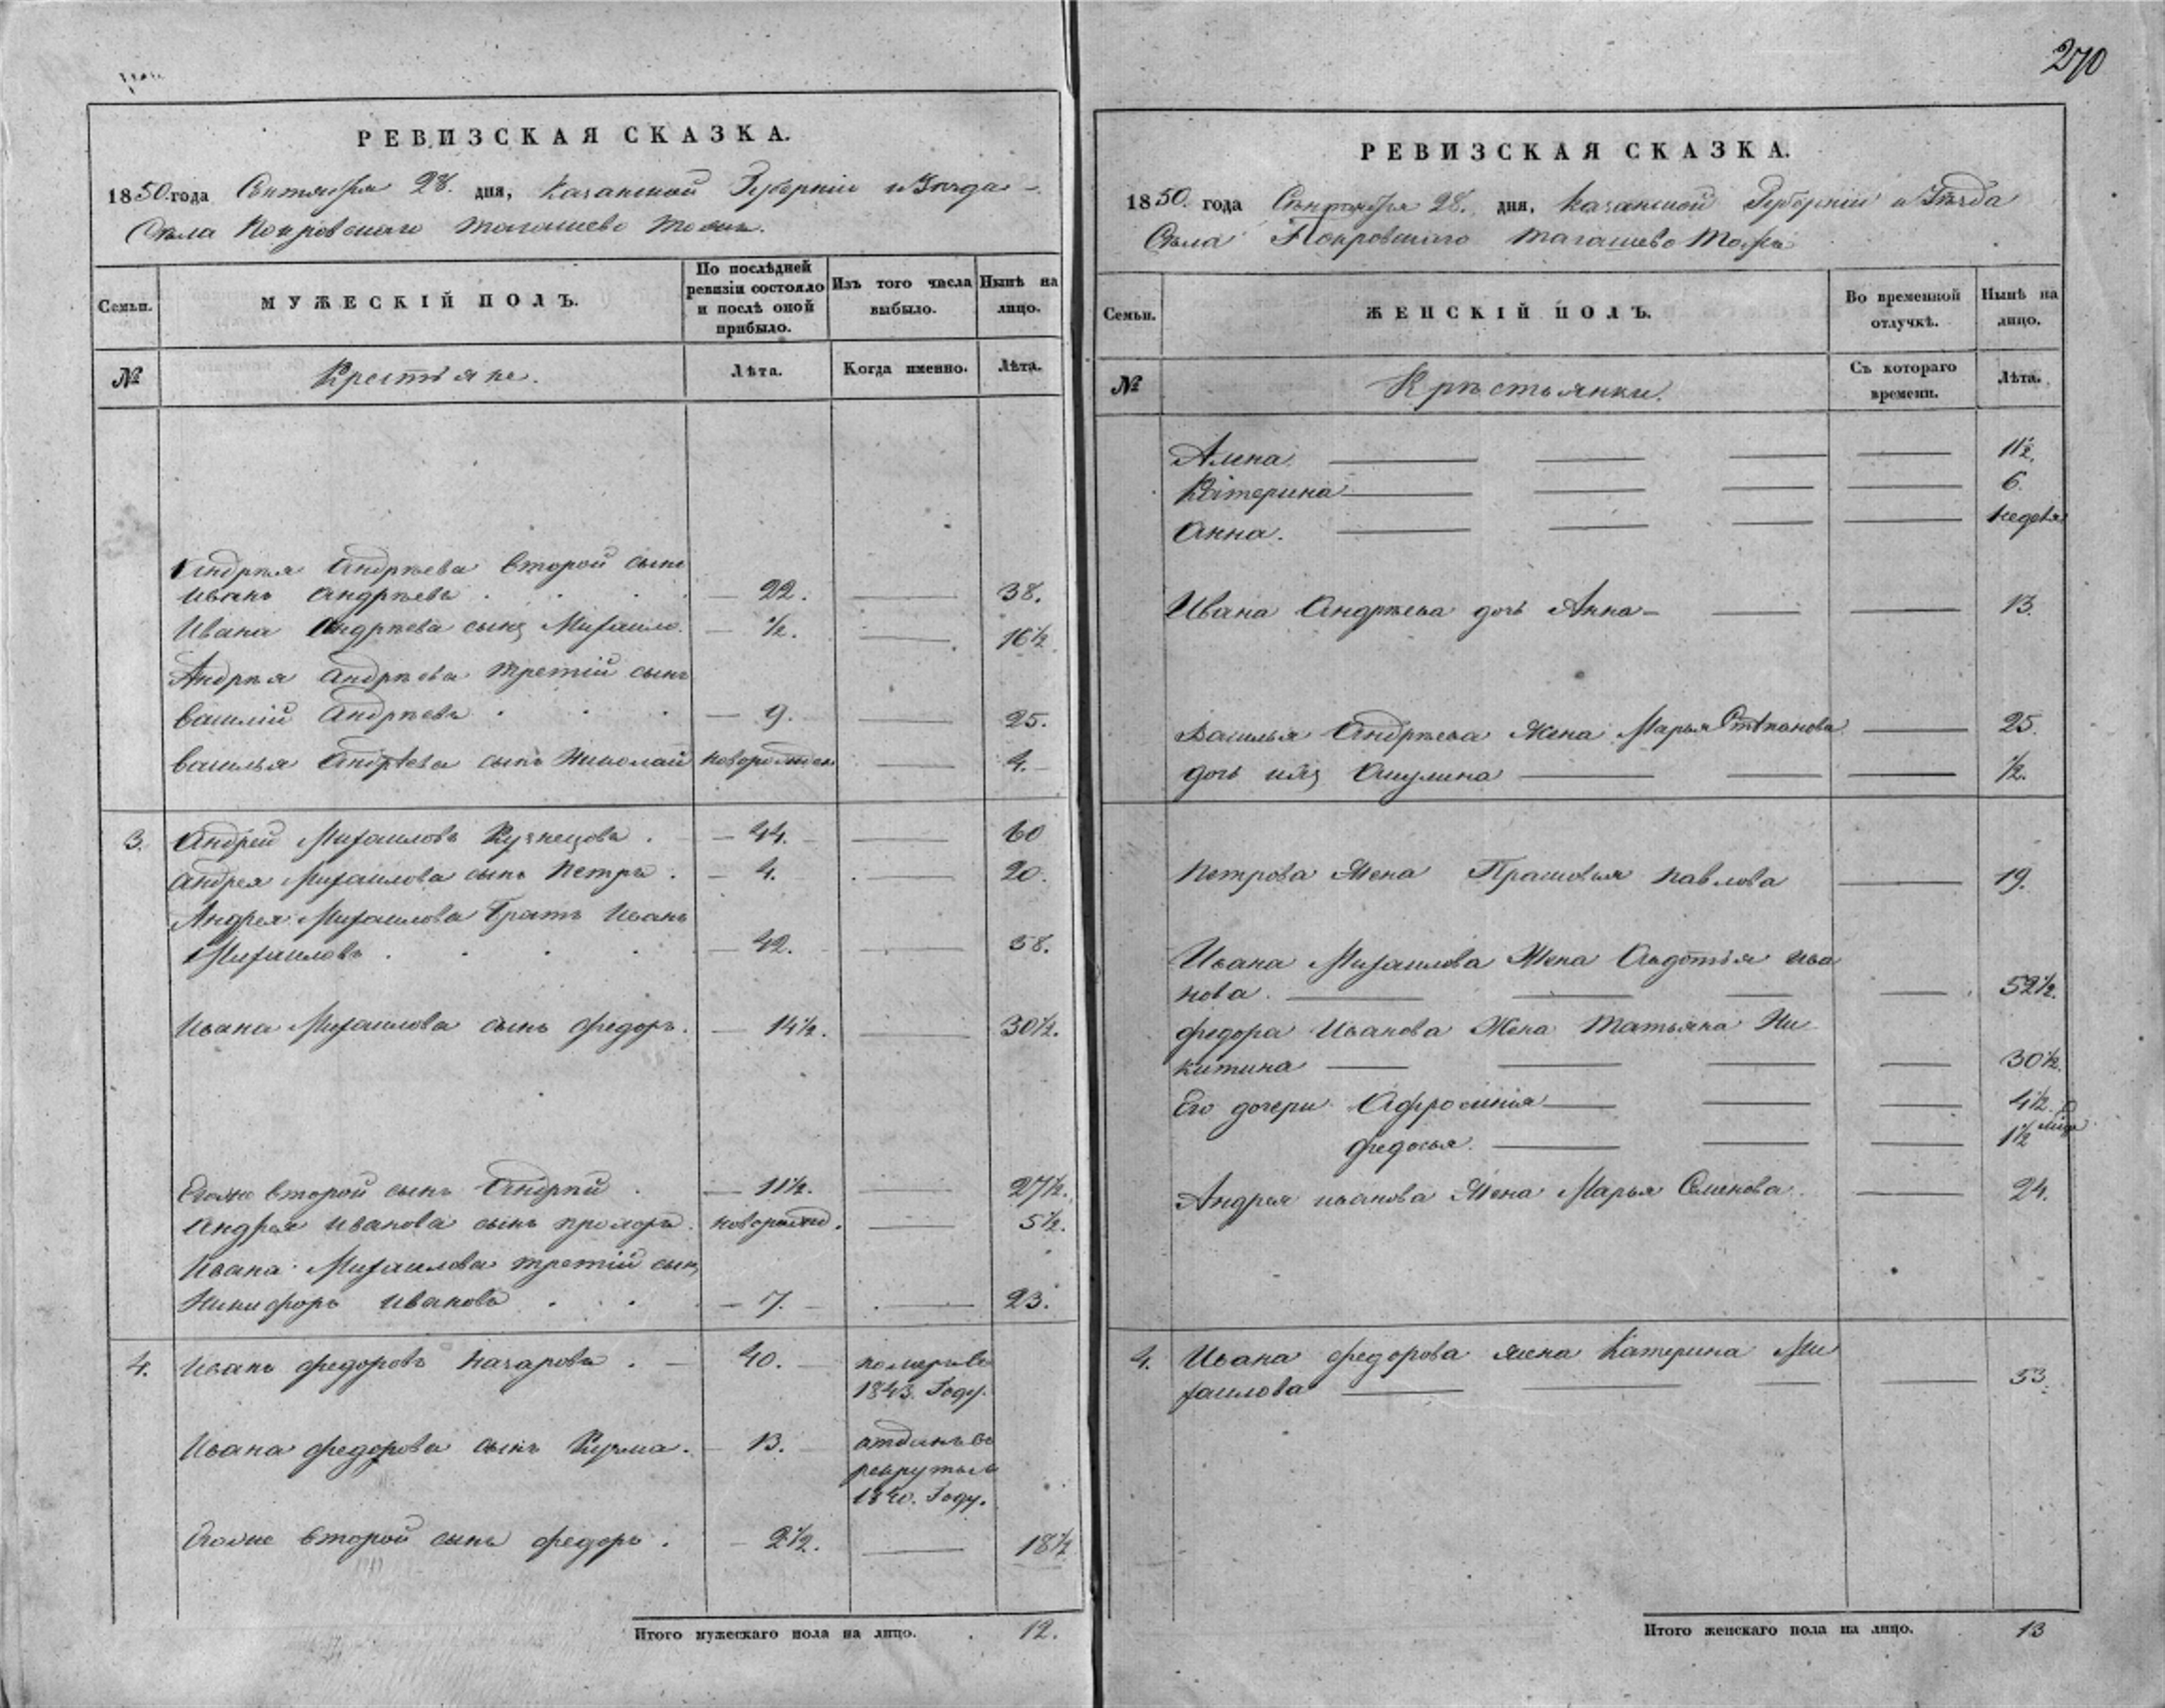 РЕВИЗСКАЯ СКАЗКА.
1850. года Сентября 28. дня, Казанской Губерніи и Уѣзда
Села Покровскаго тагашево тожъ.
Семьи.
МУЖЕСКІЙ ПОЛЪ.
По послѣдней ревизіи состояло и послѣ оной прибыло.
Изъ того числа выбыло.
Нынѣ на лицо.
№
Крестьяне.
Лѣта.
Когда именно.
Лѣта.
Андрѣя Андрѣева второй сынъ
Иванъ Андрѣевъ . — 22. — 38.
Ивана Андрѣева сынъ Михаило. — ½. — 16½
Андрѣя Андрѣева третій сынъ
Василій Андрѣевъ . — 9. — 25.
Василья Андрѣева сынъ Николай новорожден — 4.
3. Андрей Михаиловъ Кузнецовъ . — 44. — 60
Андрея Михаилова сынъ Петръ . — 4. — 20.
Андрея Михаилова братъ Иванъ
Михаиловъ . — 42. — 58.
Ивана Михаилова сынъ федоръ. — 14½. — 30½.
Егоже второй сынъ Андрѣй . — 11½. — 27½.
Андрѣя Иванова сынъ новорожд. — 5½.
Ивана Михаилова третій сынъ
Никифоръ Ивановъ . . — 7. — 23.
4. Иванъ федоровъ Назаровъ . — 40. — померъ въ
1843. Году.
Ивана федорова сынъ Кузма. — 13. — отданъ въ
рекруты въ
1840. Году.
Егоже второй сынъ федоръ . — 2½. — 18½
Итого мужескаго пола на лицо. . 12.
270
РЕВИЗСКАЯ СКАЗКА.
1850. года Сентября 28. дня, Казанской Губерніи и Уѣзда
Села Покровскаго тагашево тожъ
Семьи.
ЖЕНСКІЙ ПОЛЪ.
Во временной отлучкѣ.
Нынѣ на лицо.
№
Крѣстьянки.
Съ котораго времени.
Лѣта.
Алена — 11½.
Катерина — 6.
Анна. — неделя
Ивана Андрѣева дочь Анна — 13.
Василья Андрѣева Жена Марья Степанова — 25.
дочь ихъ Акулина — ½.
Петрова Жена Прасковья павлова — 19.
Ивана Михаилова Жена Авдотья Ива
нова. — 52½.
федора Иванова Жена Татьяна Ни
китина — 30½.
Его дочери Афросинья — 4½.
федосья. — 1½
Андрея иванова Жена Марья Семенова. — 24.
4. Ивана федорова жена Катерина Ми
хаилова — 53.
Итого женскаго пола на лицо. 13